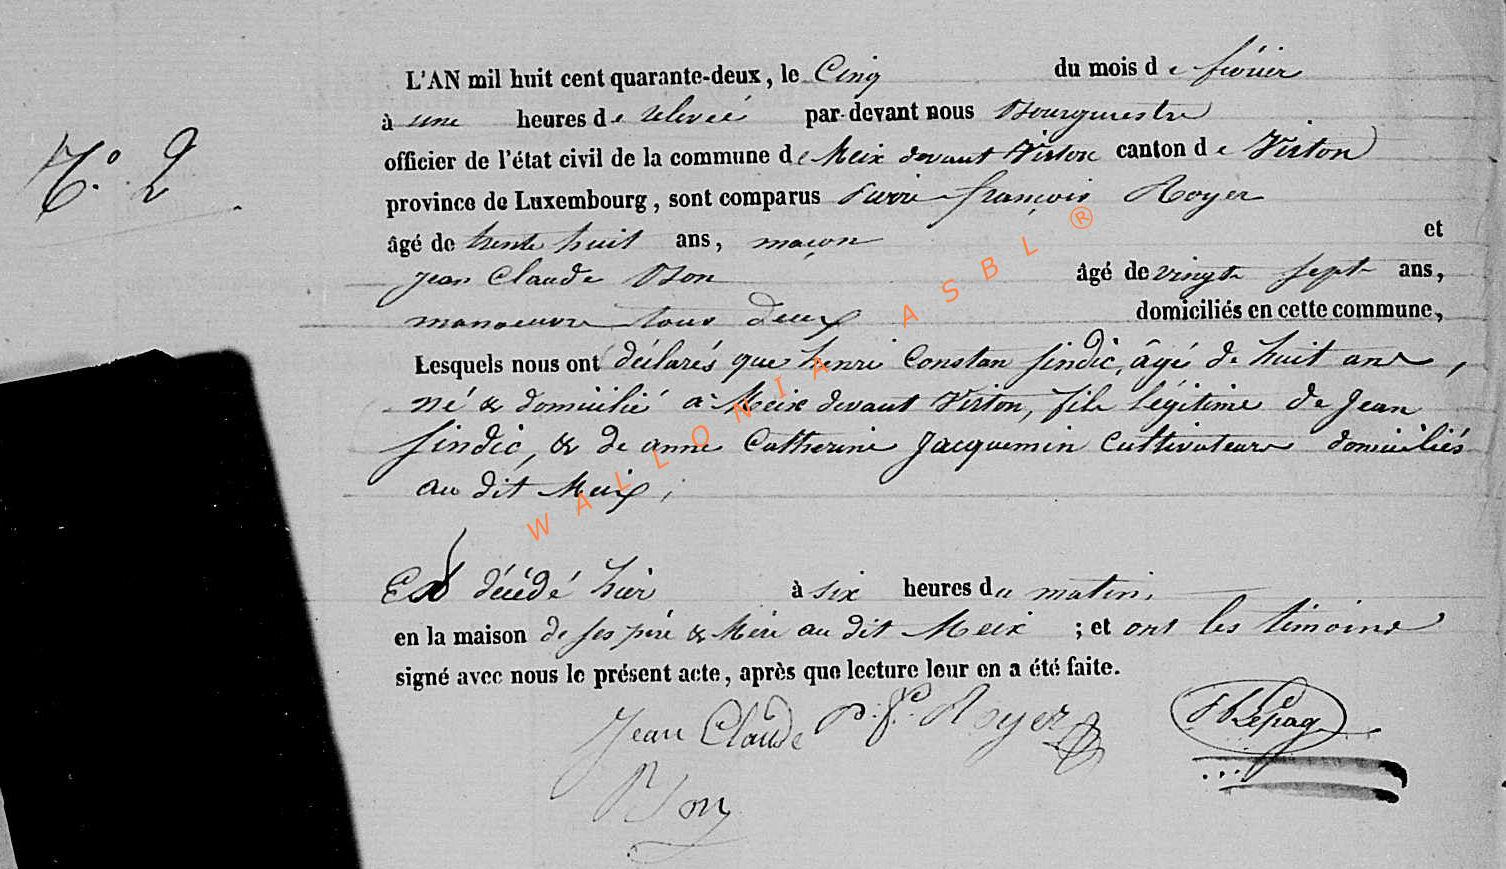 N.° 2.
L'AN mil huit cent quarante-deux, le Cinq du mois de février
à une heures de relevée par-devant nous Bourgmestre
officier de l'état civil de la commune de Meix devant Virton canton de Virton
province de Luxembourg, sont comparus Pierre françois Royer
âgé de trente huit ans, maçon et
Jean Claude Bon âgé de vingt sept ans,
manoeuvre tous deux domiciliés en cette commune,
Lesquels nous ont déclarés que henri Constan findic, âgé de huit ans,
né & domicilié à Meix devant Virton, fils légitime de Jean
findic, & de anne Catherine Jacquemin Cultivateurs domiciliés
au dit Meix;
Est décédé hier à six heures du matin,
en la maison de ses père & Mère au dit Meix ; et ont les témoins
signé avec nous le présent acte, après que lecture leur en a été faite.
Jean Claude P. fc. Royer Lepag
Bon
WALLONIA ASBL ®